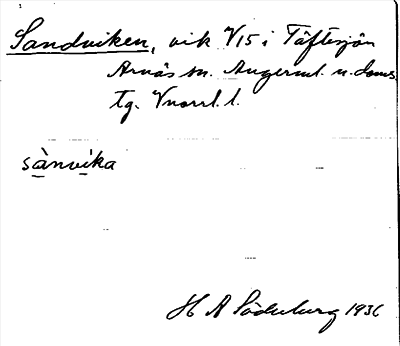 Sandviken, vik V15 i Täftesjön
Arnäs sn. Ångerml. n. doms
tg. Vnorrl. l.
sànvika
H A Söderberg 1936